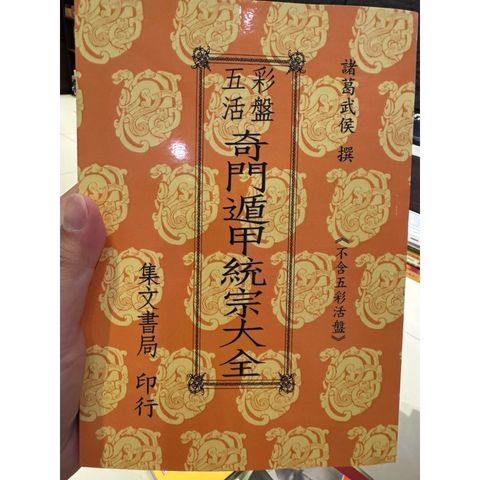 諸葛武侯 撰
《不含五彩活盤》
五彩活盤
奇門遁甲統宗大全
集文書局 印行